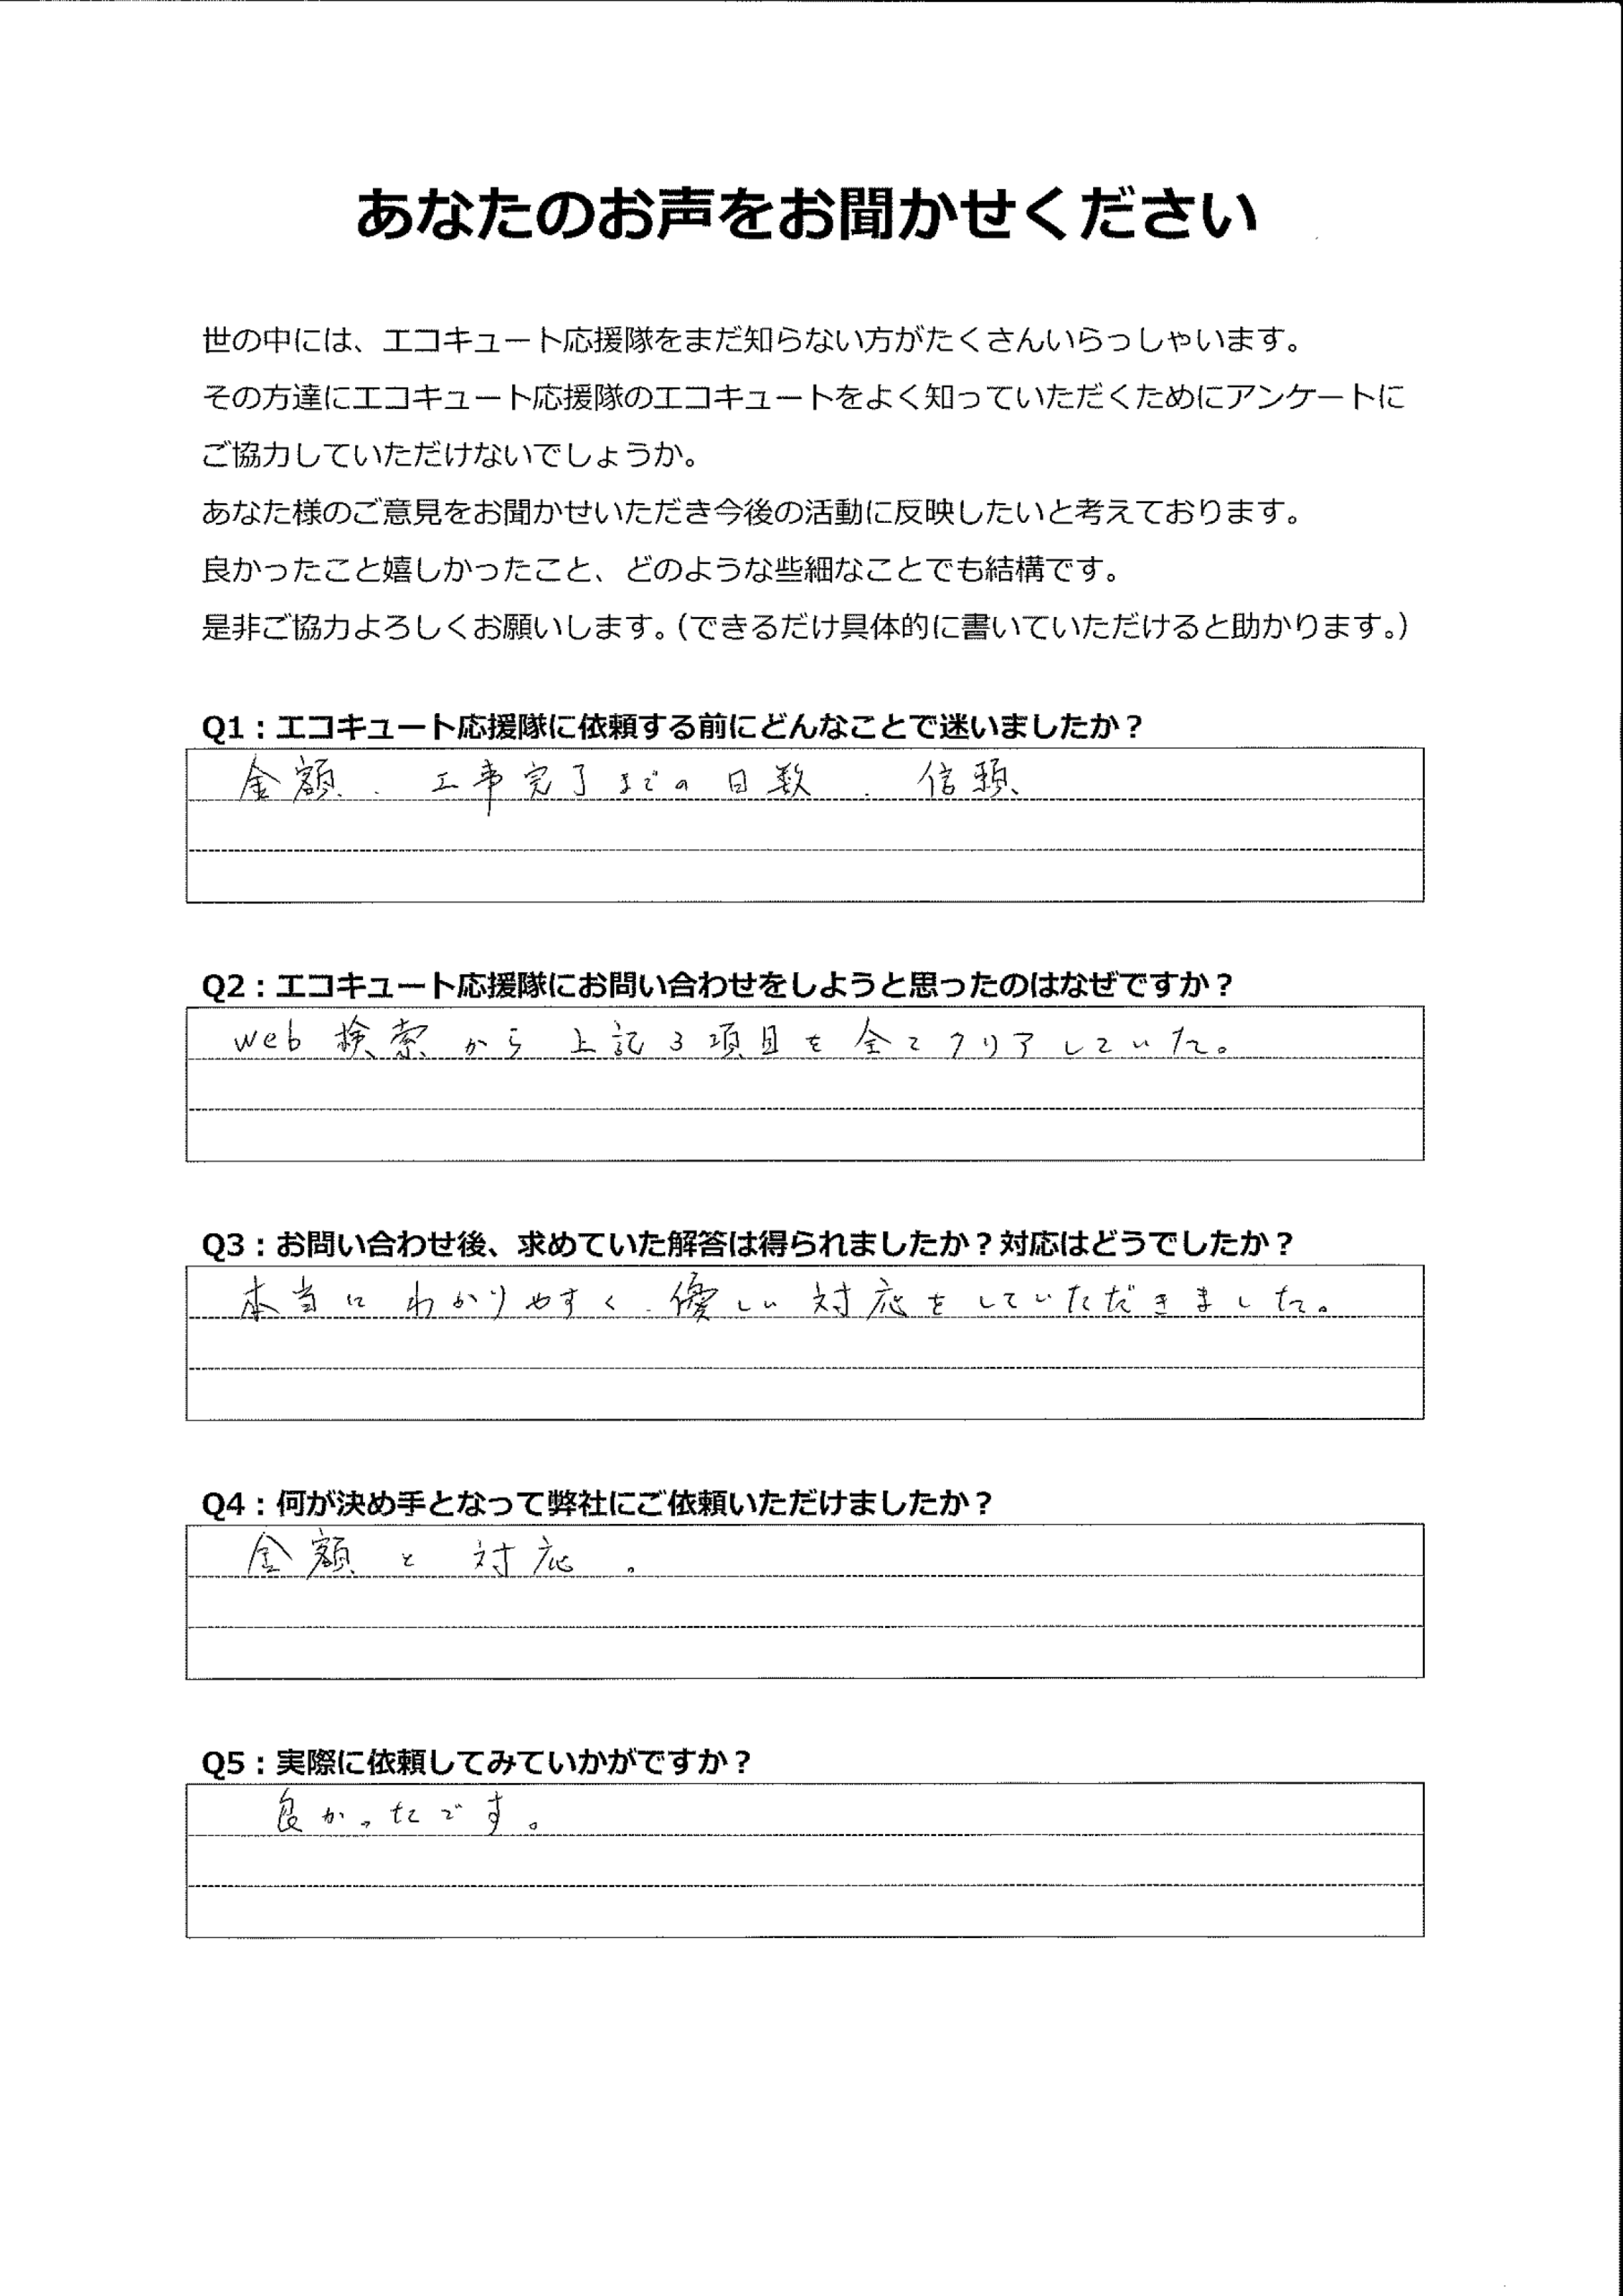 あなたのお声をお聞かせください
世の中には、エコキュート応援隊をまだ知らない方がたくさんいらっしゃいます。
その方達にエコキュート応援隊のエコキュートをよく知っていただくためにアンケートに
ご協力していただけないでしょうか。
あなた様のご意見をお聞かせいただき今後の活動に反映したいと考えております。
良かったこと嬉しかったこと、どのような些細なことでも結構です。
是非ご協力よろしくお願いします。(できるだけ具体的に書いていただけると助かります。)
Q1：エコキュート応援隊に依頼する前にどんなことで迷いましたか？
金額、工事完了までの日数、信頼
Q2：エコキュート応援隊にお問い合わせをしようと思ったのはなぜですか？
web検索から上記3項目を全てクリアしていた。
Q3：お問い合わせ後、求めていた解答は得られましたか？対応はどうでしたか？
本当にわかりやすく、優しい対応をしていただきました。
Q4：何が決め手となって弊社にご依頼いただけましたか？
金額と対応。
Q5：実際に依頼してみていかがですか？
良かったです。